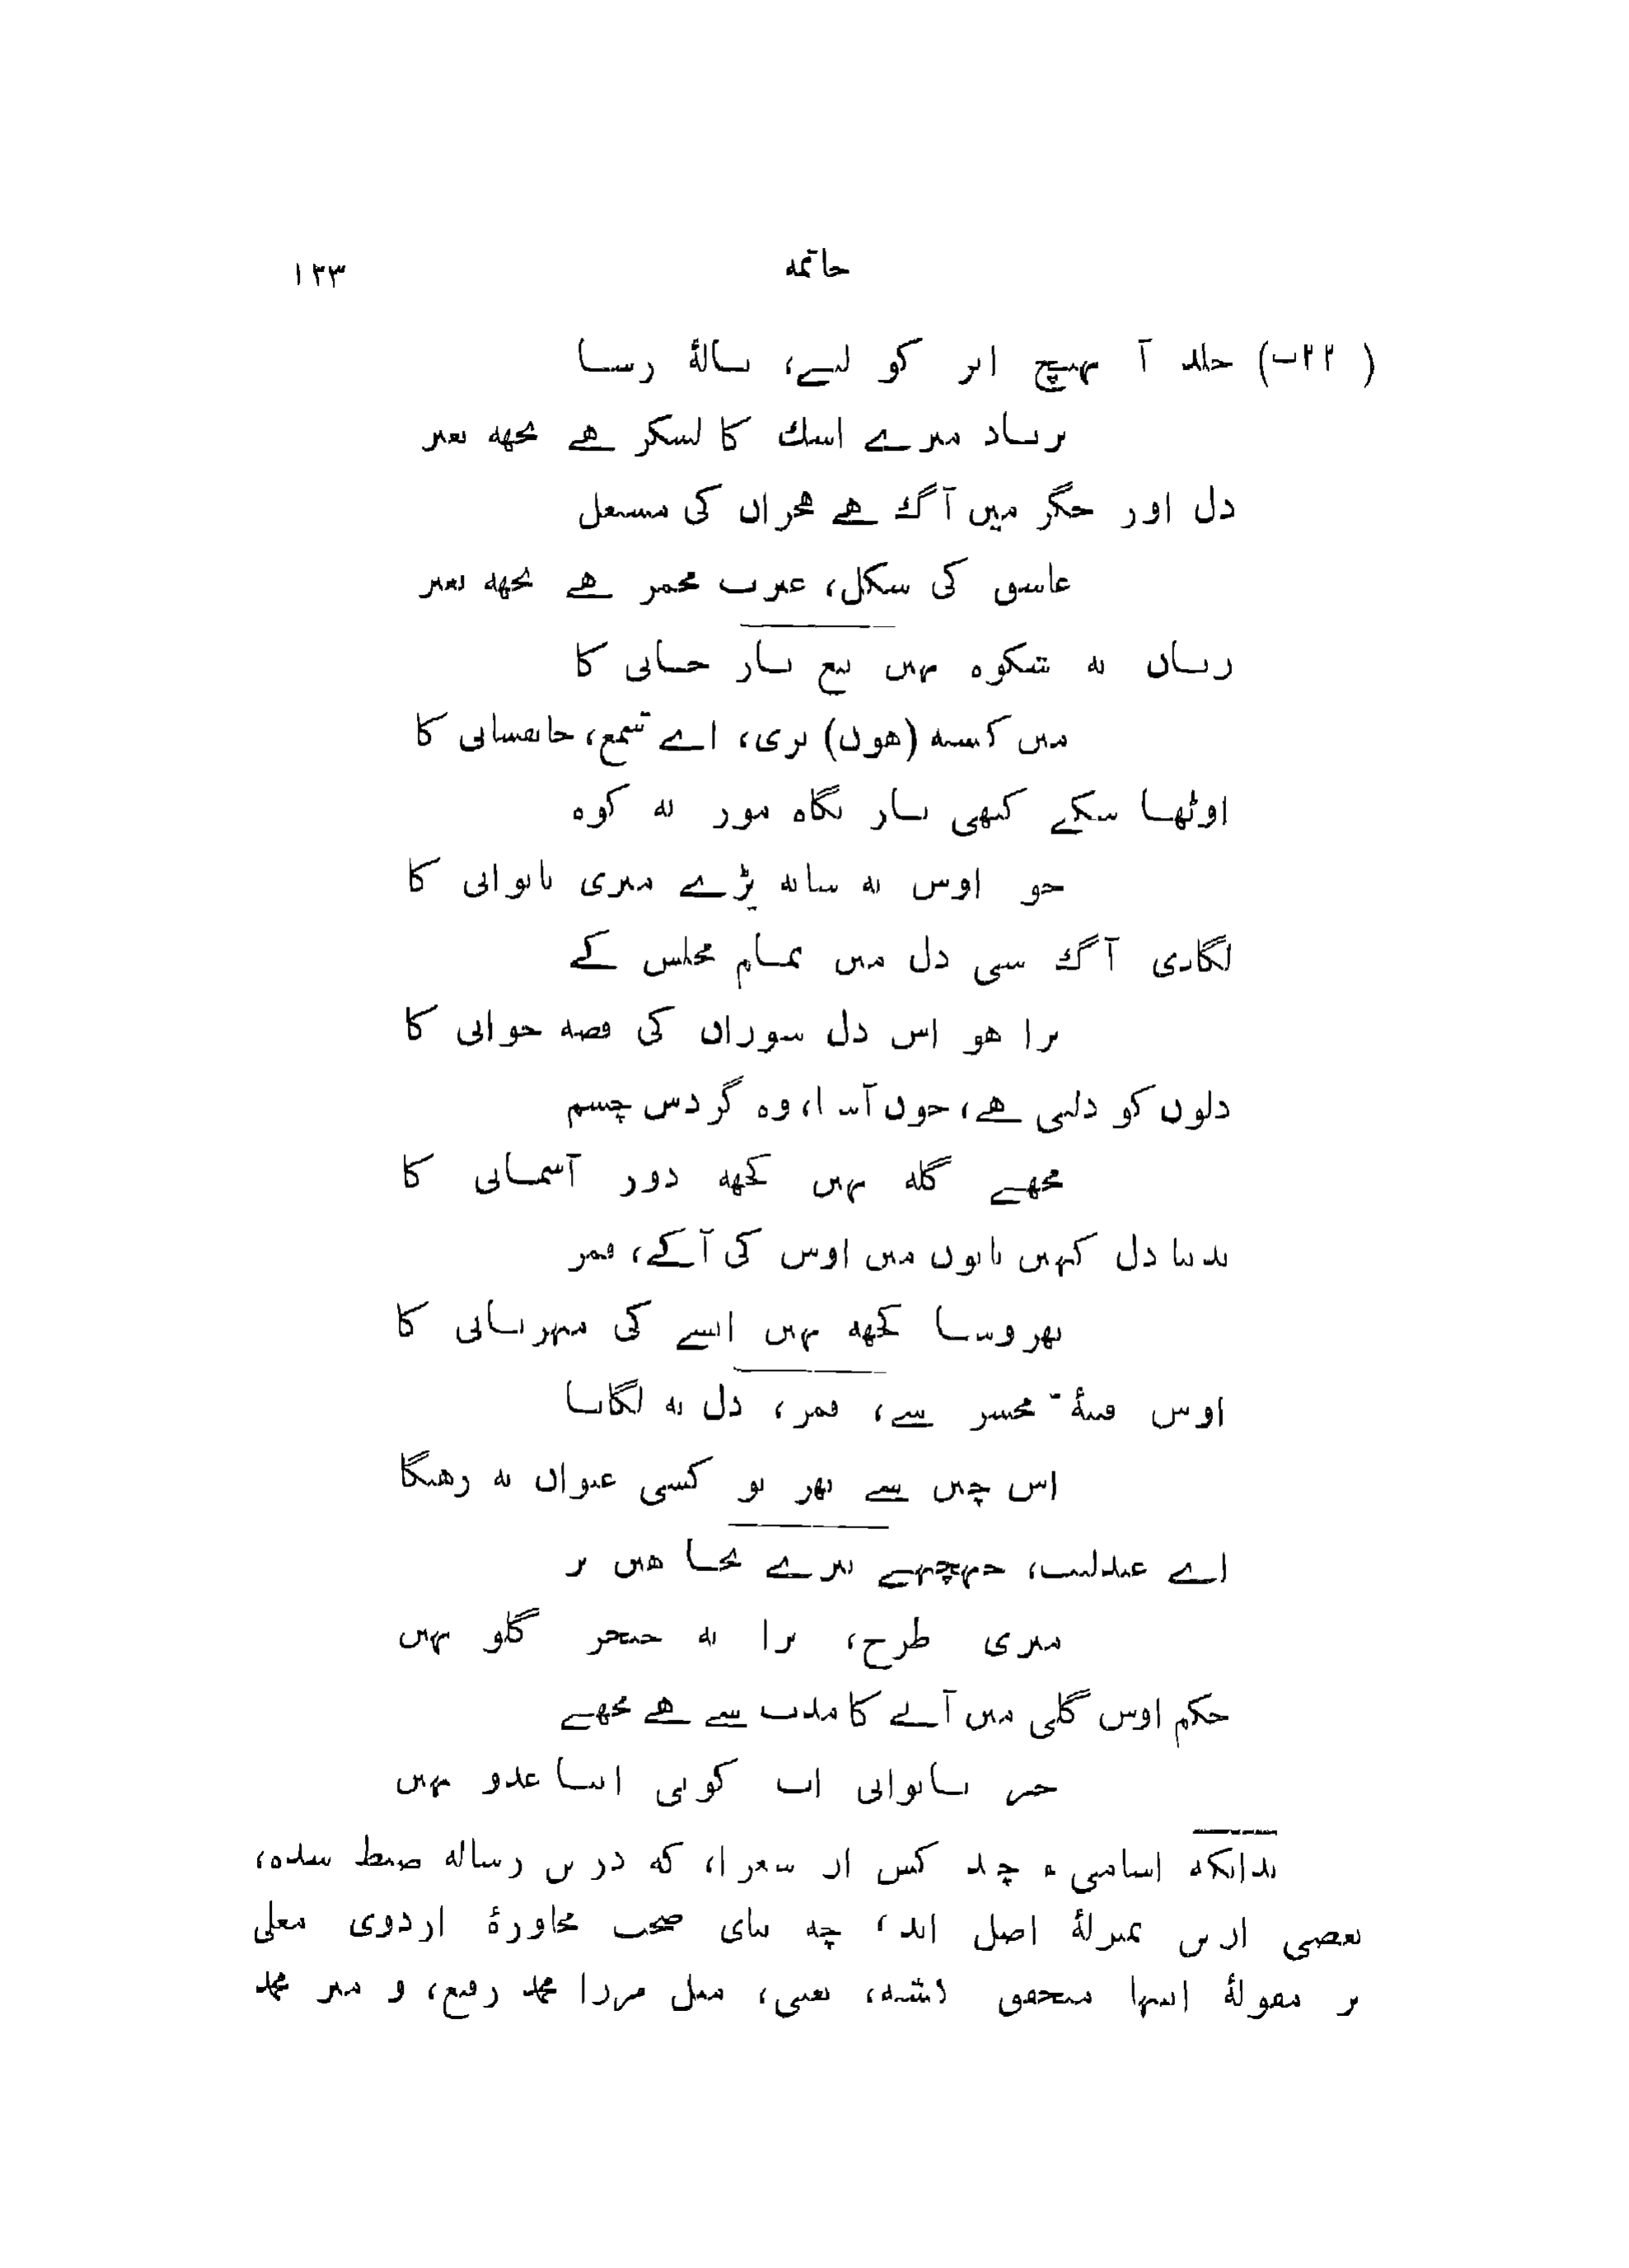 خاتمه
۱۲۳
(۲۲ب) جلد آ پہنچ اثر کو لیے، نالۂ رسا
برباد میرے اشك کا لشکر ہے تجھه بغیر
دل اور جگر میں آگ ہے ہجراں کی مشتعل
عاشق کی شکل، عبرت مجمر ہے تجھه بغیر
زبان په شکوہ نہیں تیغ یار جانی کا
میں کشته (ہوں) تری، اے شمع، جانفشانی کا
اوٹھا سکے کبھی بار نگاہ مور نه کوہ
جو اوس په سایه پڑے میری ناتوانی کا
لگادی آگ سی دل میں تمام مجلس کے
برا ہو اس دل سوزاں کی قصه خوانی کا
دلوں کو دلتی ہے، جوں آسیا، وہ گردش چشم
مجھے گله نہیں کچھه دور آسمانی کا
نه دینا دل کہیں باتوں میں اوس کی آکے، قمر
بھروسا کچھه نہیں ایسے کی مہربانی کا
اوس فتنۂ محشر سے، قمر، دل نه لگانا
اس چین سے پھر تو کسی عنوان نه رهیگا
اے عندلیب، چہچہے تیرے بجا ہیں پر
میری طرح، ترا ته خنجر گلو نہیں
حکم اوس گلی میں آنے کا مدت سے ہے مجھے
جز ناتوانی اب کوئی ایسا عدو نہیں
بدانکه اسامیء چند کس از شعرا، که درین رساله ضبط شدہ،
بعضی ازین بمنزلۂ اصل اند، چه بنای صحت محاورۂ اردوی معلی
بر مقولۂ اینها متحقق گشته، یعنی، مثل مرزا محمد رفیع، و میر محمد